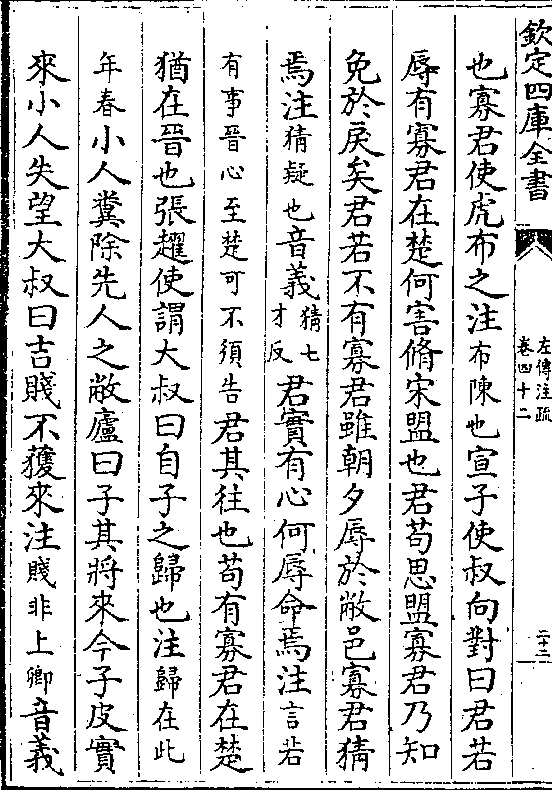 欽定四庫全書
左傳注疏
卷四十二
二十二
也寡君使虎布之注布陳也宣子使叔向對曰君若
辱有寡君在楚何害脩宋盟也君苟思盟寡君乃知
免於戾矣君若不有寡君雖朝夕辱於敝邑寡君猜
焉注猜疑也音義猜七才反君實有心何辱命焉注言若
有事晉心至楚可不須告君其往也苟有寡君在楚
猶在晉也張趯使謂大叔曰自子之歸也注歸在此
年春小人糞除先人之敝廬曰子其將來今子皮實
來小人失望大叔曰吉賤不獲來注賤非上卿音義